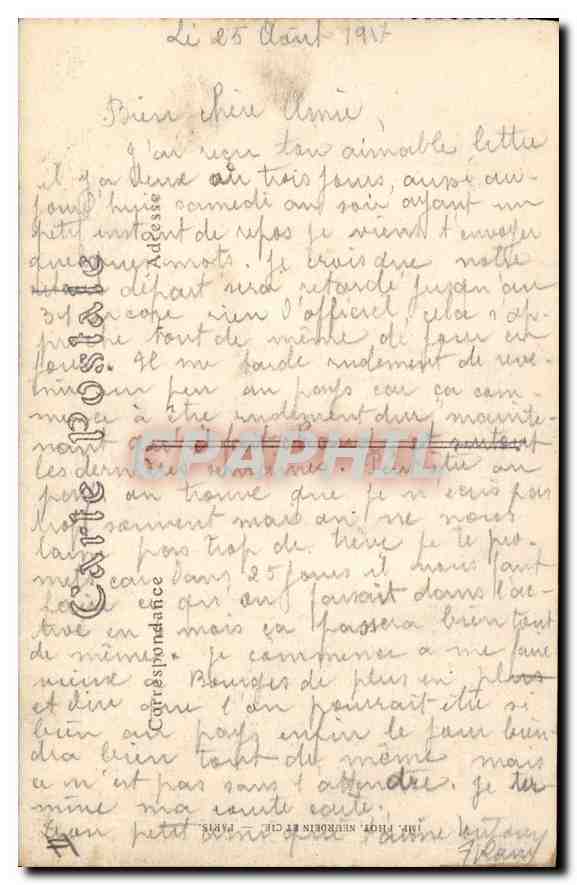 Le 25 Août 1917
Bien chère Amie,
J'ai reçu ton aimable lettre
il y a deux ou trois jours, aussi au-
jourd'hui samedi au soir ayant un
petit instant de repos je viens t'envoyer
quelques mots. Je crois que notre
départ sera retardé jusqu'au
31 encore rien d'officiel cela s'ap-
proche tout de même de jour en
jour. Il me tarde rudement de reve-
nir un peu au pays car ça com-
mence à être rudement dur mainte-
nant surtout
les dernières semaines. Peut être au
pays on trouve que je n'écris pas
trop souvent mais on ne nous
laisse pas trop de trève je te pro-
mets car dans 25 jours il nous faut
faire ce qu'on faisait dans l'ac-
tive en mois ça passera bien tout
de même. Je commence a me faire
vieux Bourges de plus en plus
et dire que l'on pourrait être si
bien au pays enfin le jour vien-
dra bien tout de même mais
ce n'est pas sans l'attendre. Je ter-
mine ma courte carte.
Ton petit ami qui t'aime toujours
Carte Postale
Correspondance
Adresse
IMP. PHOT. NEURDEIN ET CIE. — PARIS.
CPAPHIL